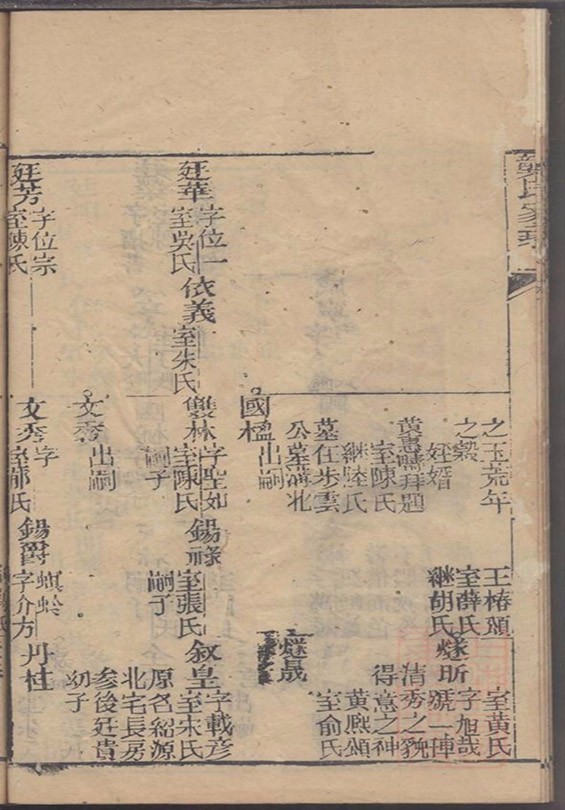 龔氏家
之玉荒年
之穀
姪婿
黃惠疇拜題
室陳氏
繼陸氏
墓在步雲
公墓溝北
國楹出嗣
王椿頌
室薛氏
繼胡氏
燧昕
字旭哉
號一陣
室黃氏
清秀之貌
得意之神
黃熙頌
室俞氏
燧晟
廷華
字位一
室吳氏
依義
室朱氏
雙林
字聖如
室陳氏
嗣子
錫祿
室張氏
嗣子
叙皇
字載彥
室宋氏
原名紹源
北宅長房
参後廷貴
幼子
文秀出嗣
廷芳
字位宗
室陳氏
文秀
字
室郁氏
錫爵
蜞蛉
字介方
丹桂